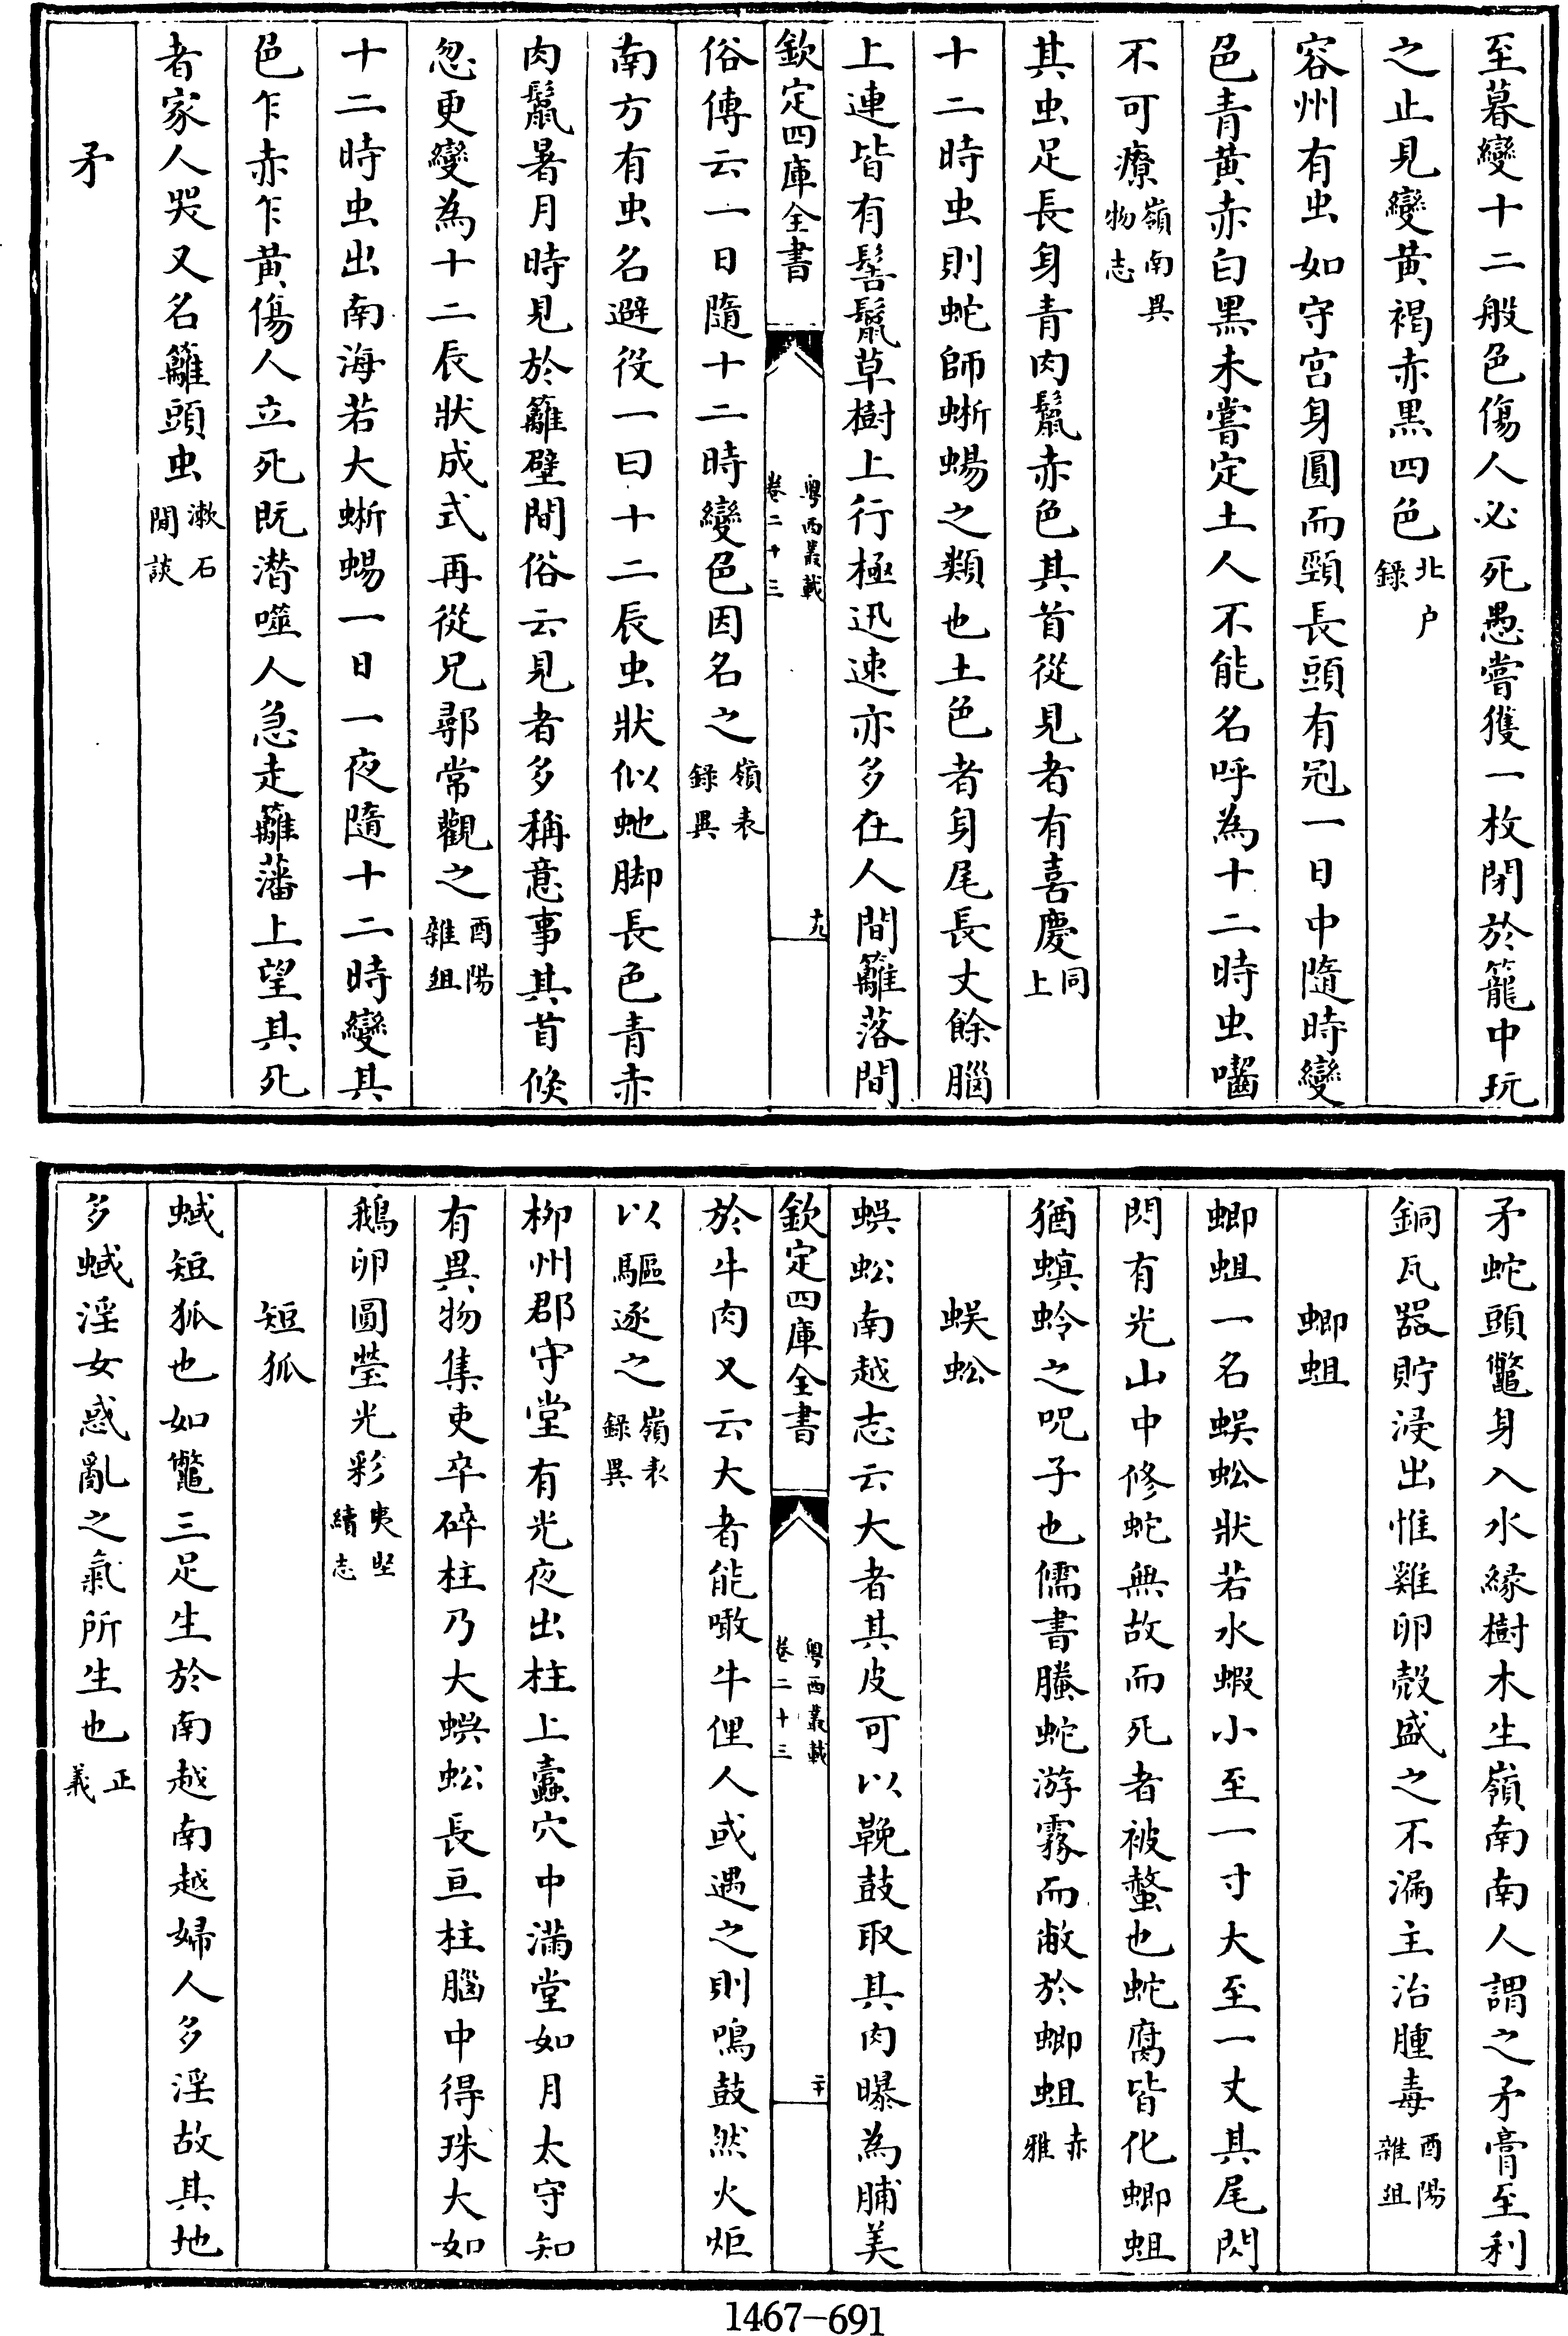 至暮變十二般色傷人必死愚嘗獲一枚閉於籠中玩
之止見變黄褐赤黒四色北户錄
容州有虫如守宫身圓而頸長頭有冠一日中隨時變
色青黄赤白黒未嘗定土人不能名呼為十二時虫嚙
不可療嶺南異物志
其虫足長身青肉鬛赤色其首從見者有喜慶同上
十二時虫則蛇師蜥蜴之類也土色者身尾長丈餘腦
上連皆有髻鬛草樹上行極迅速亦多在人間籬落間
欽定四庫全書 粤西叢載 卷二十三 十九
俗傳云一日隨十二時變色因名之嶺表錄異
南方有虫名避役一曰十二辰虫狀似虵脚長色青赤
肉鬛暑月時見於籬壁間俗云見者多稱意事其首倐
忽更變為十二辰狀成式再從兄鄩常觀之酉陽雜俎
十二時虫出南海若大蜥蜴一日一夜隨十二時變其
色乍赤乍黄傷人立死既潛噬人急走籬藩上望其死
者家人哭又名籬頭虫漱石閒談
矛
矛蛇頭鼈身入水緣樹木生嶺南南人謂之矛膏至利
銅瓦器貯浸出惟雞卵殼盛之不漏主治腫毒酉陽雜俎
蝍蛆
蝍蛆一名蜈蚣狀若水蝦小至一寸大至一丈其尾閃
閃有光山中修蛇無故而死者被螫也蛇腐皆化蝍蛆
猶螟蛉之呪子也儒書螣蛇游霧而敝於蝍蛆赤雅
蜈蚣
蜈蚣南越志云大者其皮可以鞔鼓取其肉曝為脯美
欽定四庫全書 粤西叢載 卷二十三 二十
於牛肉又云大者能噉牛俚人或遇之則鳴鼓然火炬
以驅逐之嶺表錄異
栁州郡守堂有光夜出柱上蠧穴中滿堂如月太守知
有異物集吏卒碎柱乃大蜈蚣長亘柱腦中得珠大如
鵝卵圓瑩光彩夷堅續志
短狐
蜮短狐也如鼈三足生於南越南越婦人多淫故其地
多蜮淫女惑亂之氣所生也正義
1467-691